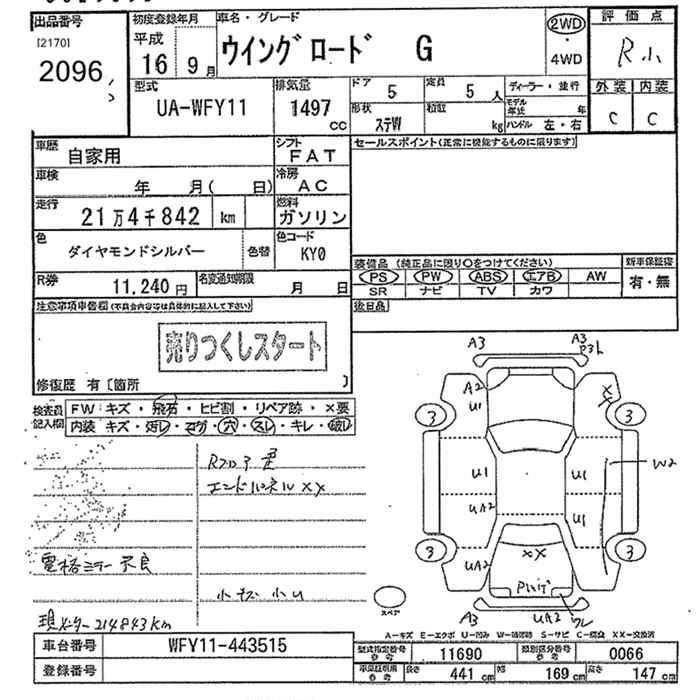 出品番号
[2170]
2096
初度登録年月
平成
16 9月
車名・グレード
ウイングロード G
2WD
・
4WD
評価点
R小
外装 内装
C C
型式
UA-WFY11
排気量
1497
CC
ドア
5
定員
5人
形状
ステW
積数
kg
ディーラー・並行
モデル年式 年
ハンドル 左・右
車歴
自家用
シフト
FAT
車検
年 月( 日)
冷房
AC
走行
21万4千842 km
燃料
ガソリン
色
ダイヤモンドシルバー
色替
色コード
KY0
R券
11,240円
名変通知期限
月 日
セールスポイント(正常に機能するものに限ります)
装備品 (純正品に限り○をつけてください)
PS PW ABS エアB AW
SR ナビ TV カワ
新車保証書
有・無
後日品
注意事項申告欄(不具合内容等は具体的に記入して下さい)
売りつくしスタート
修復歴 有〔箇所 〕
検査員記入欄
FW キズ・飛石・ヒビ割・リペア跡・×要
内装 キズ・汚レ・コゲ・穴・スレ・キレ・破レ
Rフロア
エンドパネルXX
電格ミラー不良
小キズ 小U
現メーター214843km
A3
A3
A2
U1
X
3
3
U1
U1
W2
UA2
U1
3
3
UA2
XX
A3
UA2
スペア
A-キズ E-エクボ U-凹み W-補修跡 S-サビ C-腐食 XX-交換済
車台番号
WFY11-443515
登録番号
型式指定番号
参考
11690
類別区分番号
参考
0066
車両証明用
参考
長さ
441cm
幅
169cm
高さ
147cm